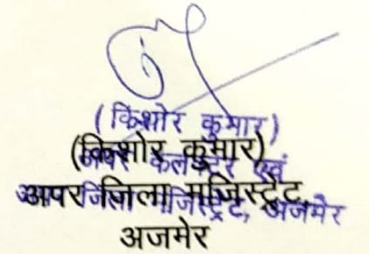 (किशोर कुमार)
(किशोर कुमार)
अपर कलेक्टर एवं
अपर जिला मजिस्ट्रेट, अजमेर
अपर जिला मजिस्ट्रेट,
अजमेर